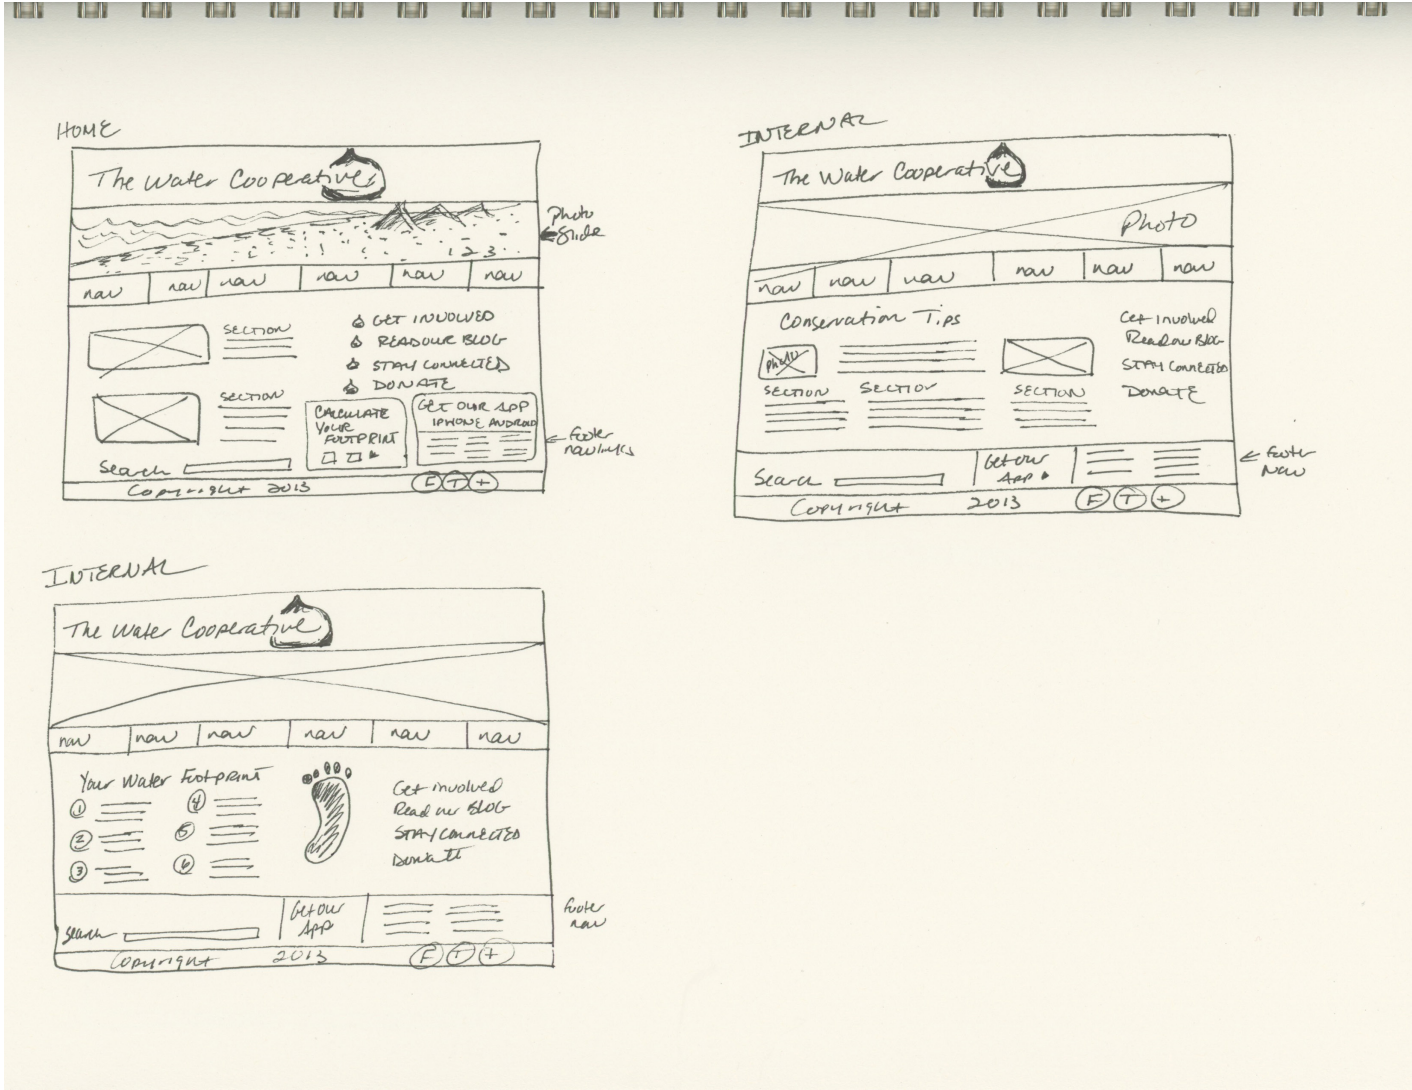 HOME
The Water Cooperative
Photo
Slide
1 2 3
nav nav nav nav nav nav
SECTION
GET INVOLVED
READ OUR BLOG
STAY CONNECTED
DONATE
SECTION
CALCULATE
YOUR
FOOTPRINT
GET OUR APP
IPHONE ANDROID
footer
nav links
Search
Copyright 2013
F T +
INTERNAL
The Water Cooperative
Photo
nav nav nav nav nav nav
Conservation Tips
Photo
SECTION SECTION SECTION
Get Involved
Read our BLOG
STAY CONNECTED
DONATE
Search
Get Our
App
footer
NAV
Copyright 2013
F T +
INTERNAL
The Water Cooperative
nav nav nav nav nav nav
Your Water Footprint
1 4
2 5
3 6
Get involved
Read our BLOG
STAY CONNECTED
Donate
Search
Get Our
App
footer
nav
Copyright 2013
F T +